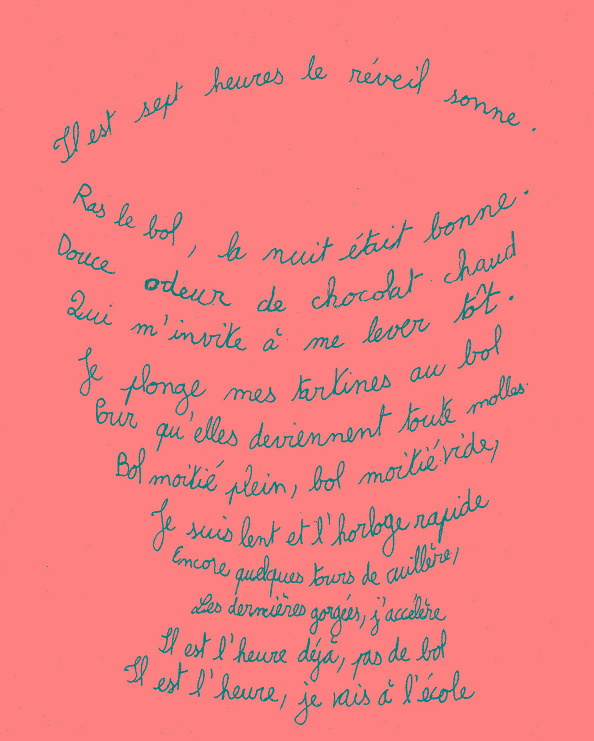 Il est sept heures le réveil sonne.
Ras le bol, la nuit était bonne.
Douce odeur de chocolat chaud
Qui m'invite à me lever tôt.
Je plonge mes tartines au bol
Pour qu'elles deviennent toute molles.
Bol moitié plein, bol moitié vide,
Je suis lent et l'horloge rapide
Encore quelques tours de cuillère,
Les dernières gorgées, j'accélère
Il est l'heure déjà, pas de bol
Il est l'heure, je vais à l'école